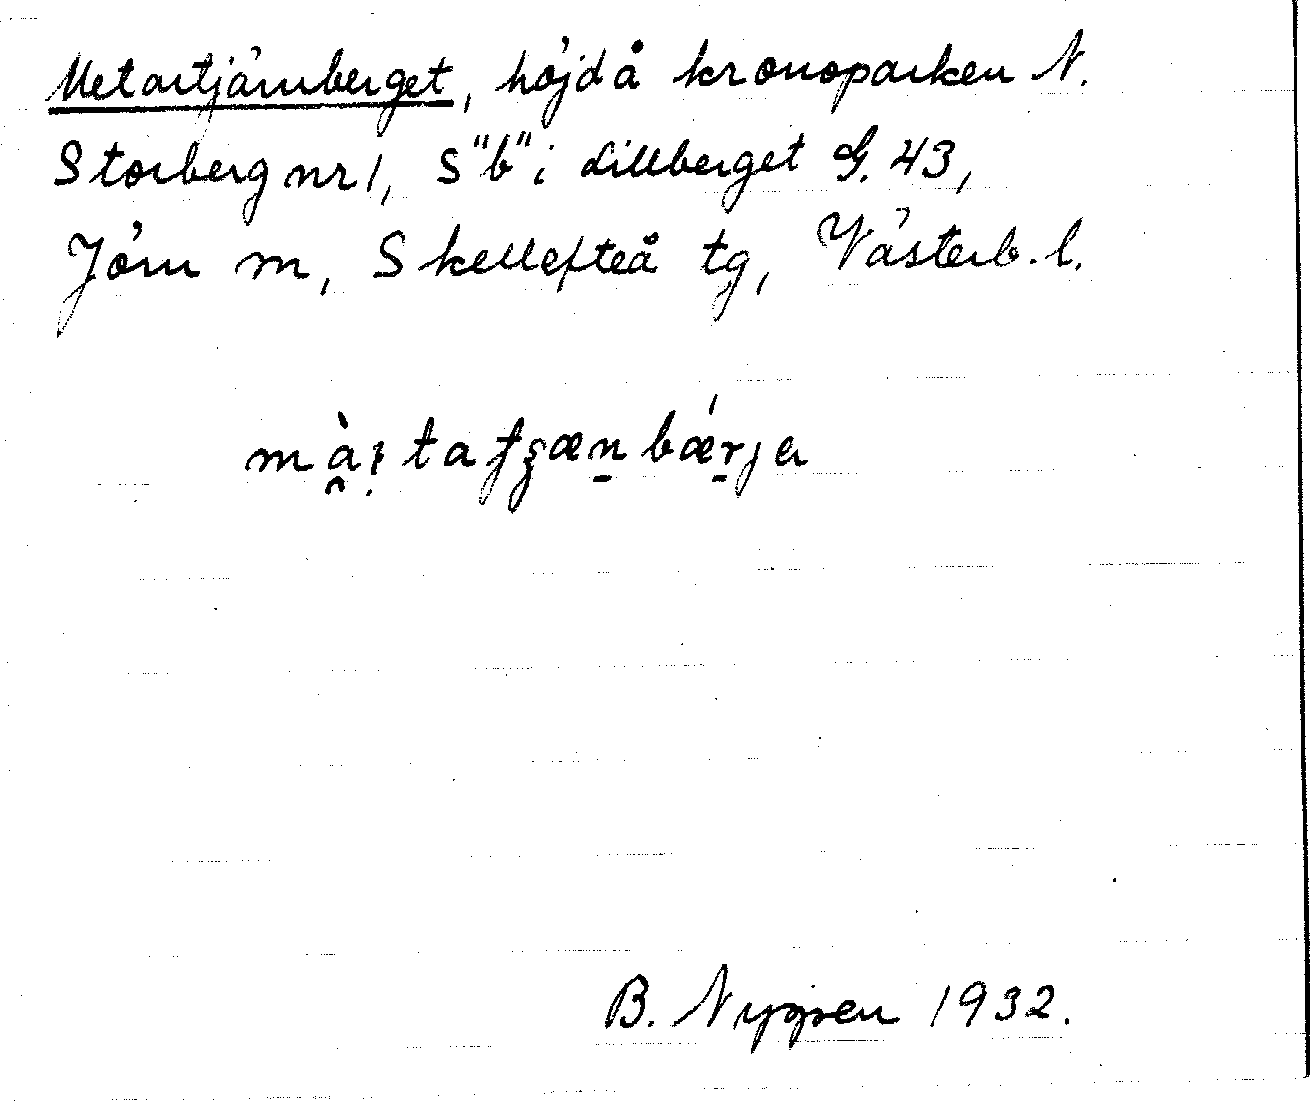 Metartjärnberget, höjd å kronoparken N.
Storberg nr 1, S "b" i Lillberget G. 43,
Jörn m, Skellefteå tg, Västerb. l.
B. Nygren 1932.